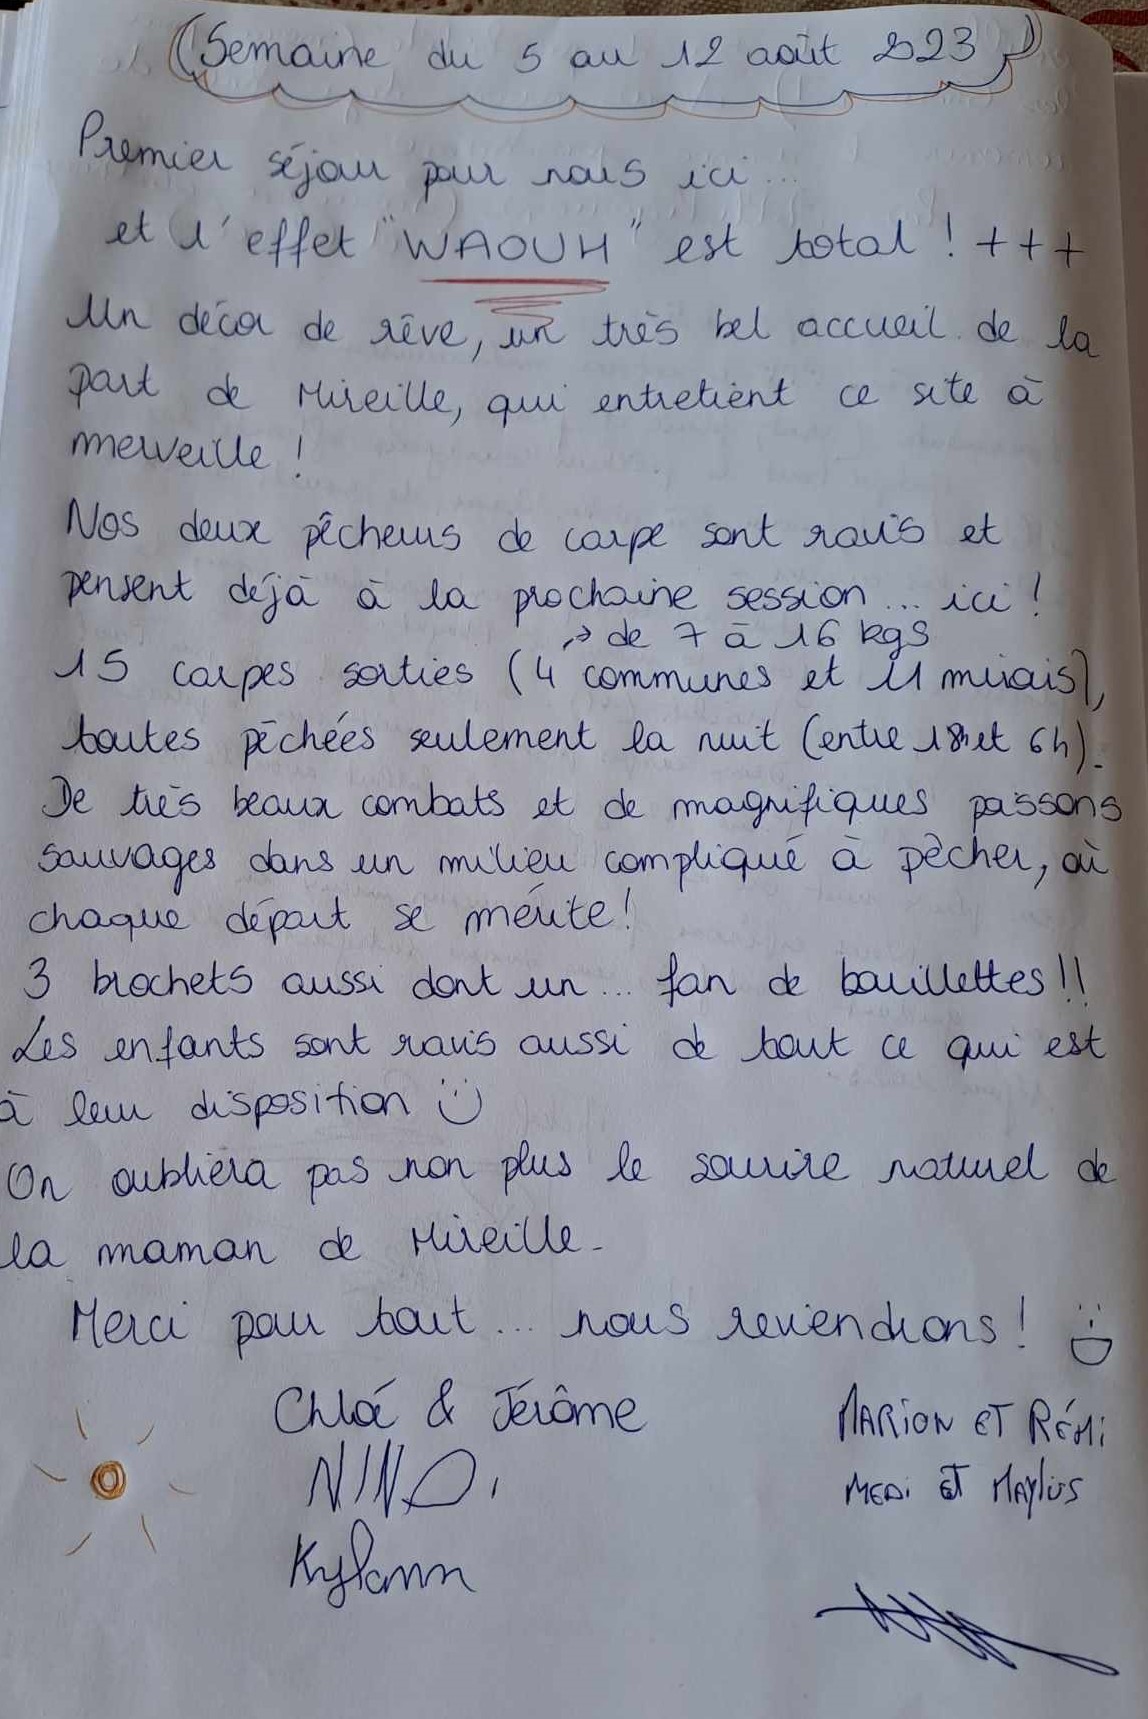 (Semaine du 5 au 12 août 2023)
Premier séjour pour nous ici...
et l'effet "WAOUH" est total ! +++
Un décor de rêve, un très bel accueil de la
part de Mireille, qui entretient ce site à
merveille !
Nos deux pêcheurs de carpe sont ravis et
pensent déjà à la prochaine session... ici !
→ de 7 à 16 kgs
15 carpes sorties (4 communes et 11 miroirs),
toutes pêchées seulement la nuit (entre 18h et 6h).
De très beaux combats et de magnifiques poissons
sauvages dans un milieu compliqué à pêcher, où
chaque départ se mérite !
3 brochets aussi dont un... fan de bouillettes !!
Les enfants sont ravis aussi de tout ce qui est
à leur disposition :)
On oubliera pas non plus le sourire naturel de
la maman de Mireille.
Merci pour tout... nous reviendrons ! :D
Chloé & Jérôme
MARION ET RÉMi
NINO,
MEDi ET MAYlUS
Kylann